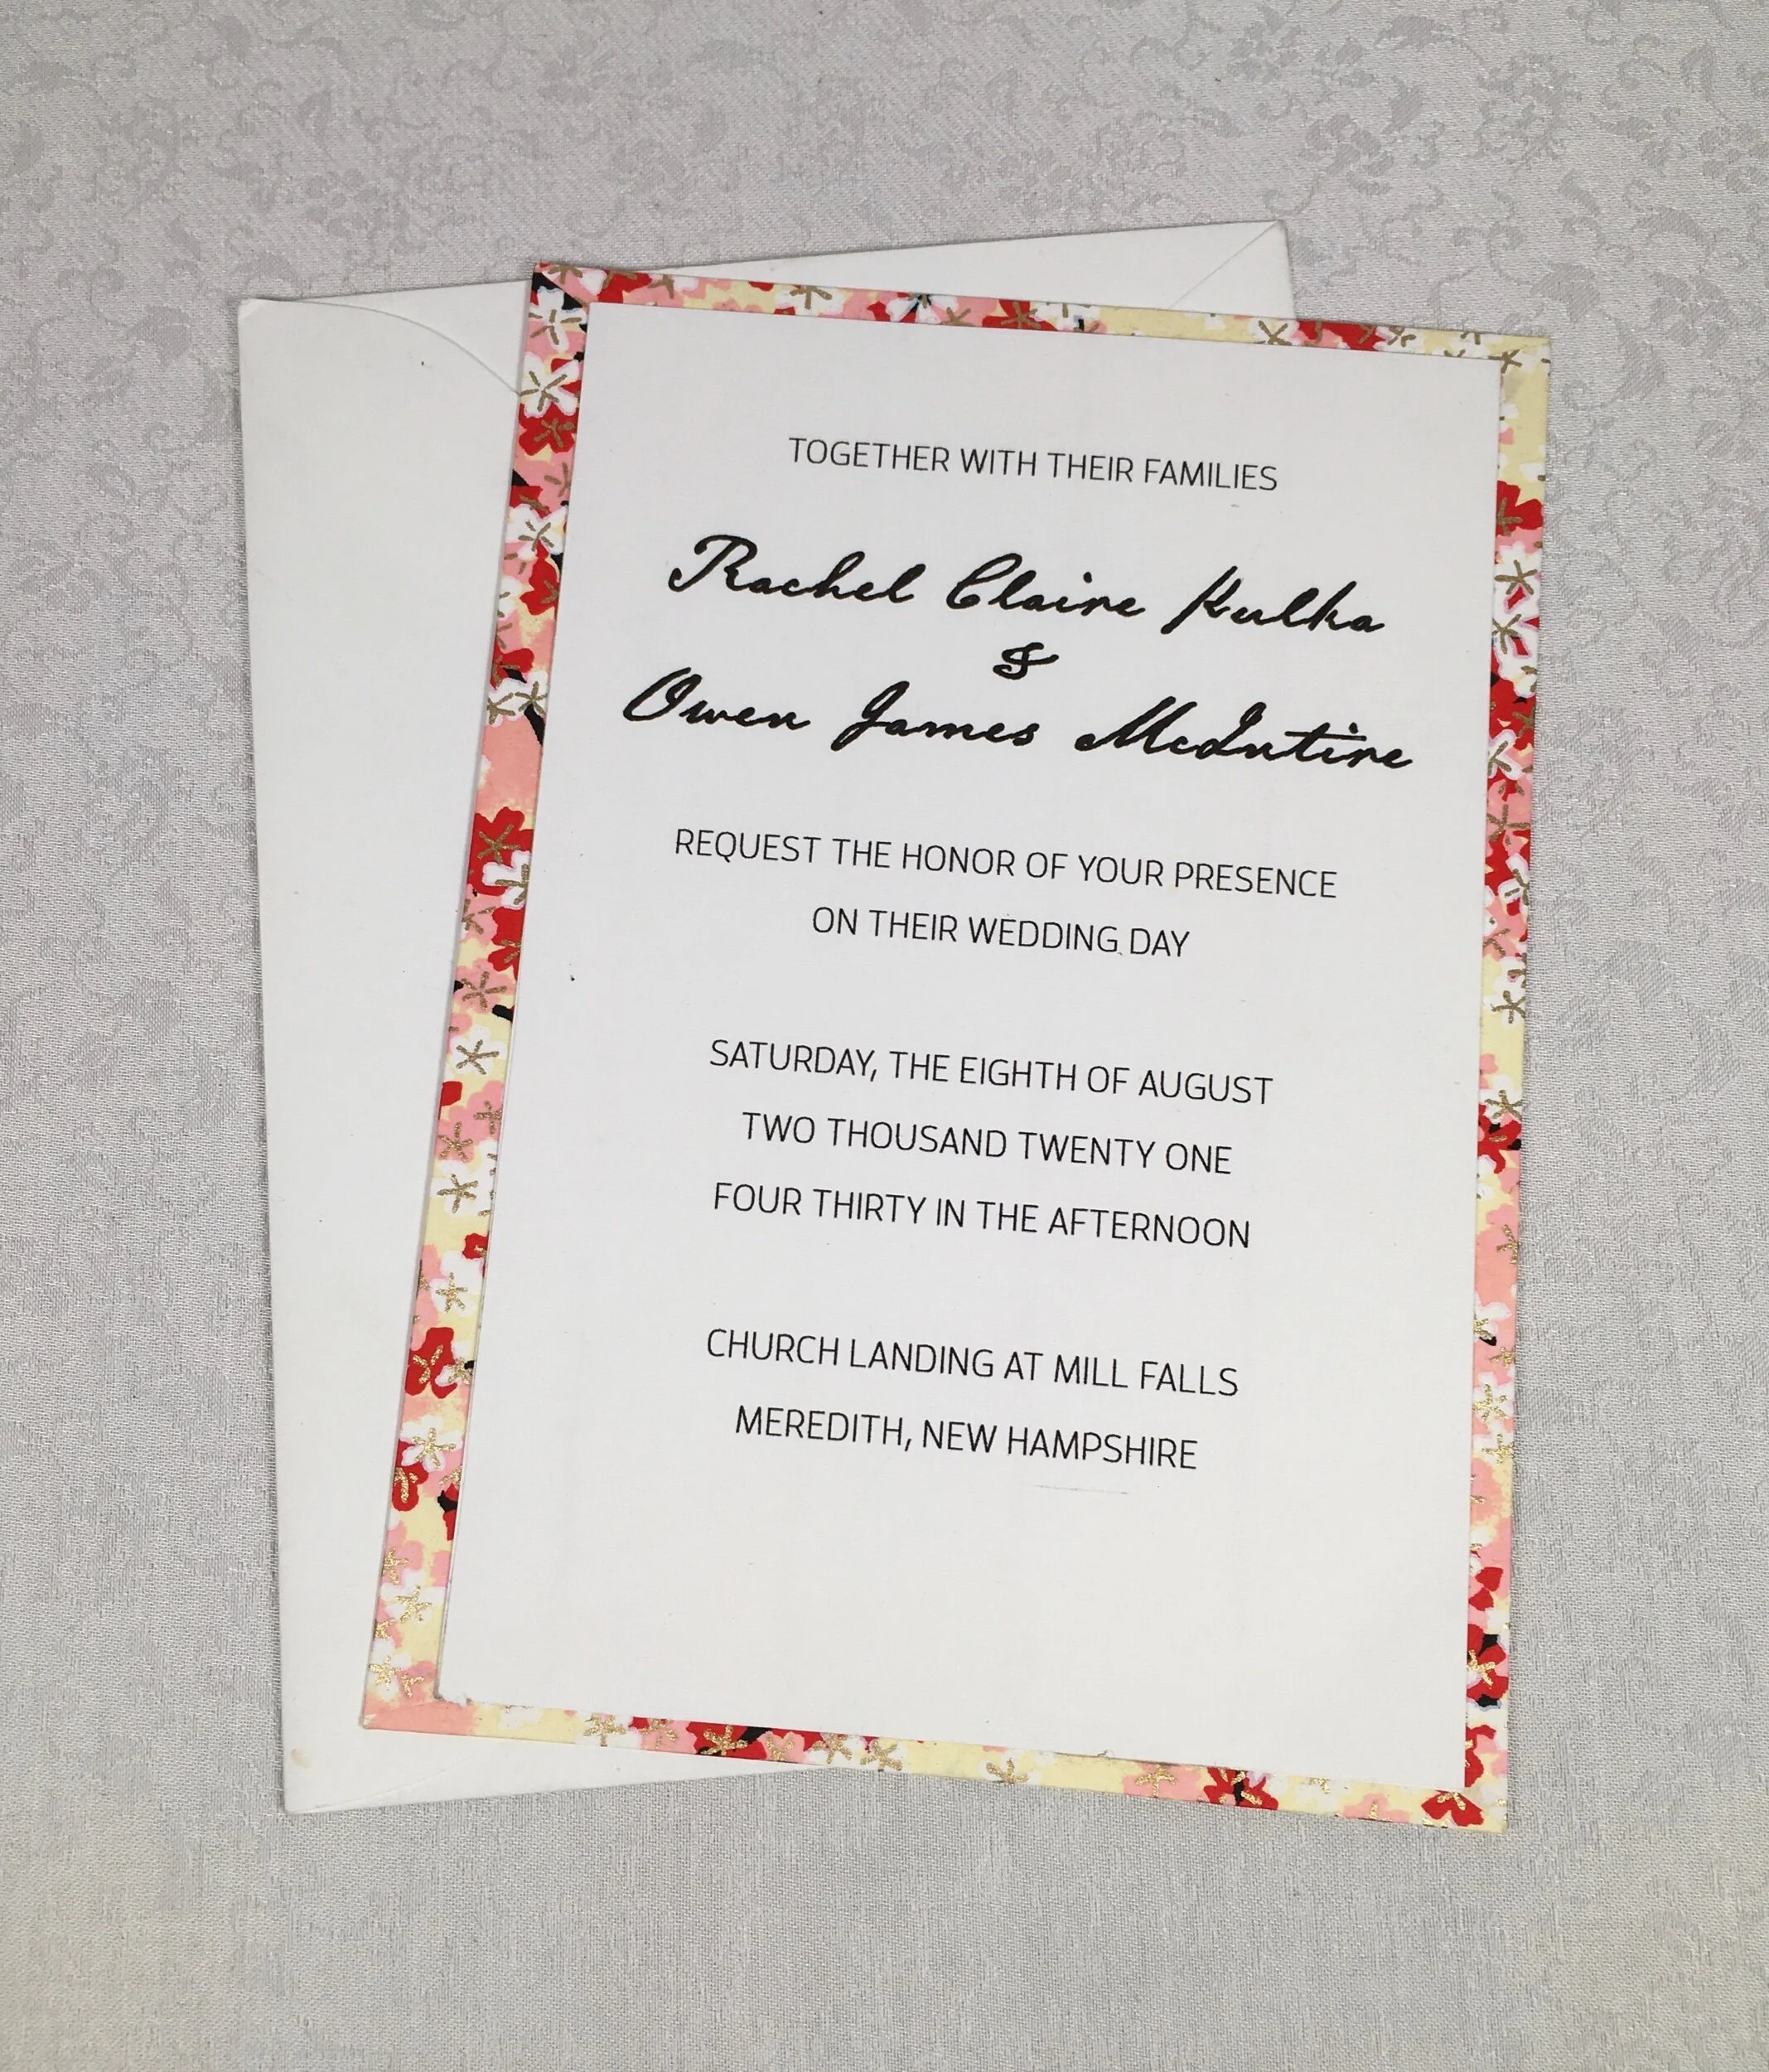 TOGETHER WITH THEIR FAMILIES
Rachel Claire Kulka
&
Owen James McIntire
REQUEST THE HONOR OF YOUR PRESENCE
ON THEIR WEDDING DAY
SATURDAY, THE EIGHTH OF AUGUST
TWO THOUSAND TWENTY ONE
FOUR THIRTY IN THE AFTERNOON
CHURCH LANDING AT MILL FALLS
MEREDITH, NEW HAMPSHIRE